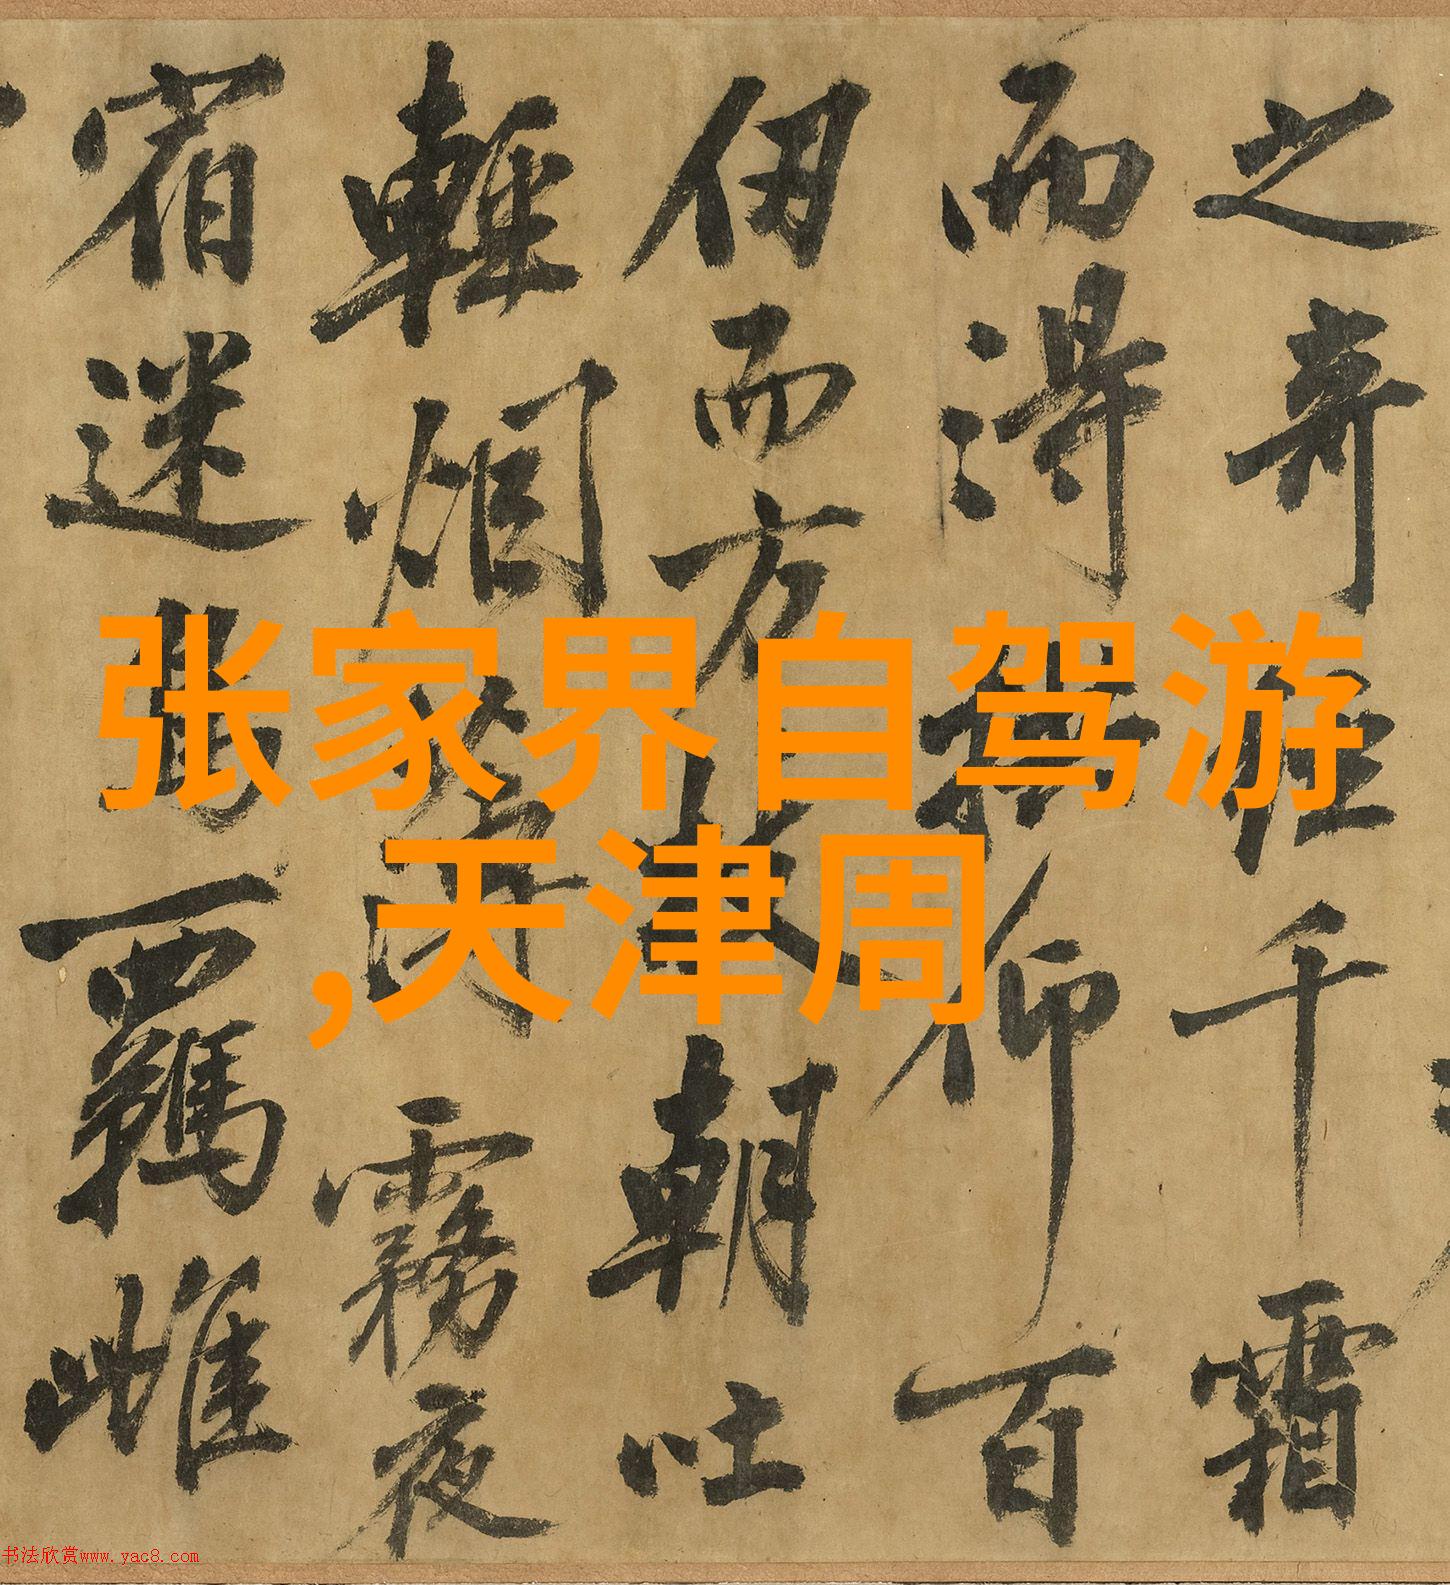 之奇千霜
而得仰百
仞而方朝吐
輕烟霧夜
宿迷羈雌
张家界自驾游
,天津周
书法欣赏www.yac8.com